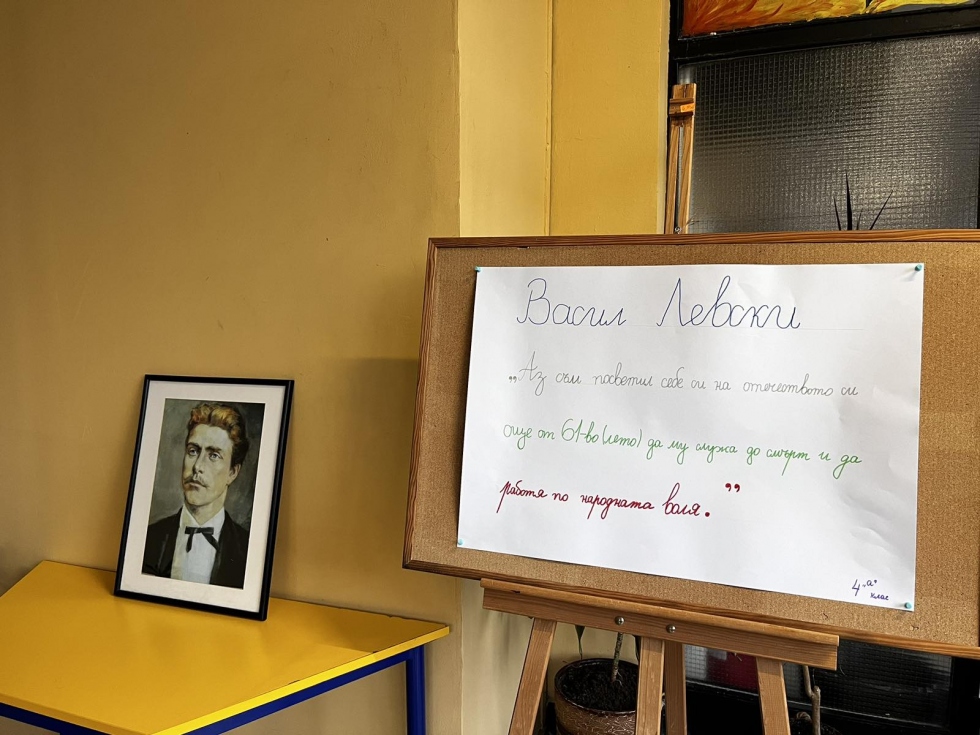 Васил Левски
„Аз съм посветил себе си на отечеството си
още от 61-во (лето) да му служа до смърт и да
работя по народната воля.”
4 „а“ клас